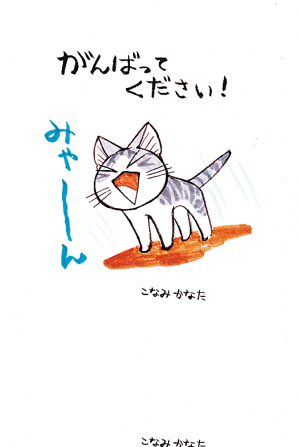 がんばって
ください!
みゃーん
こなみ かなた
こなみ かなた